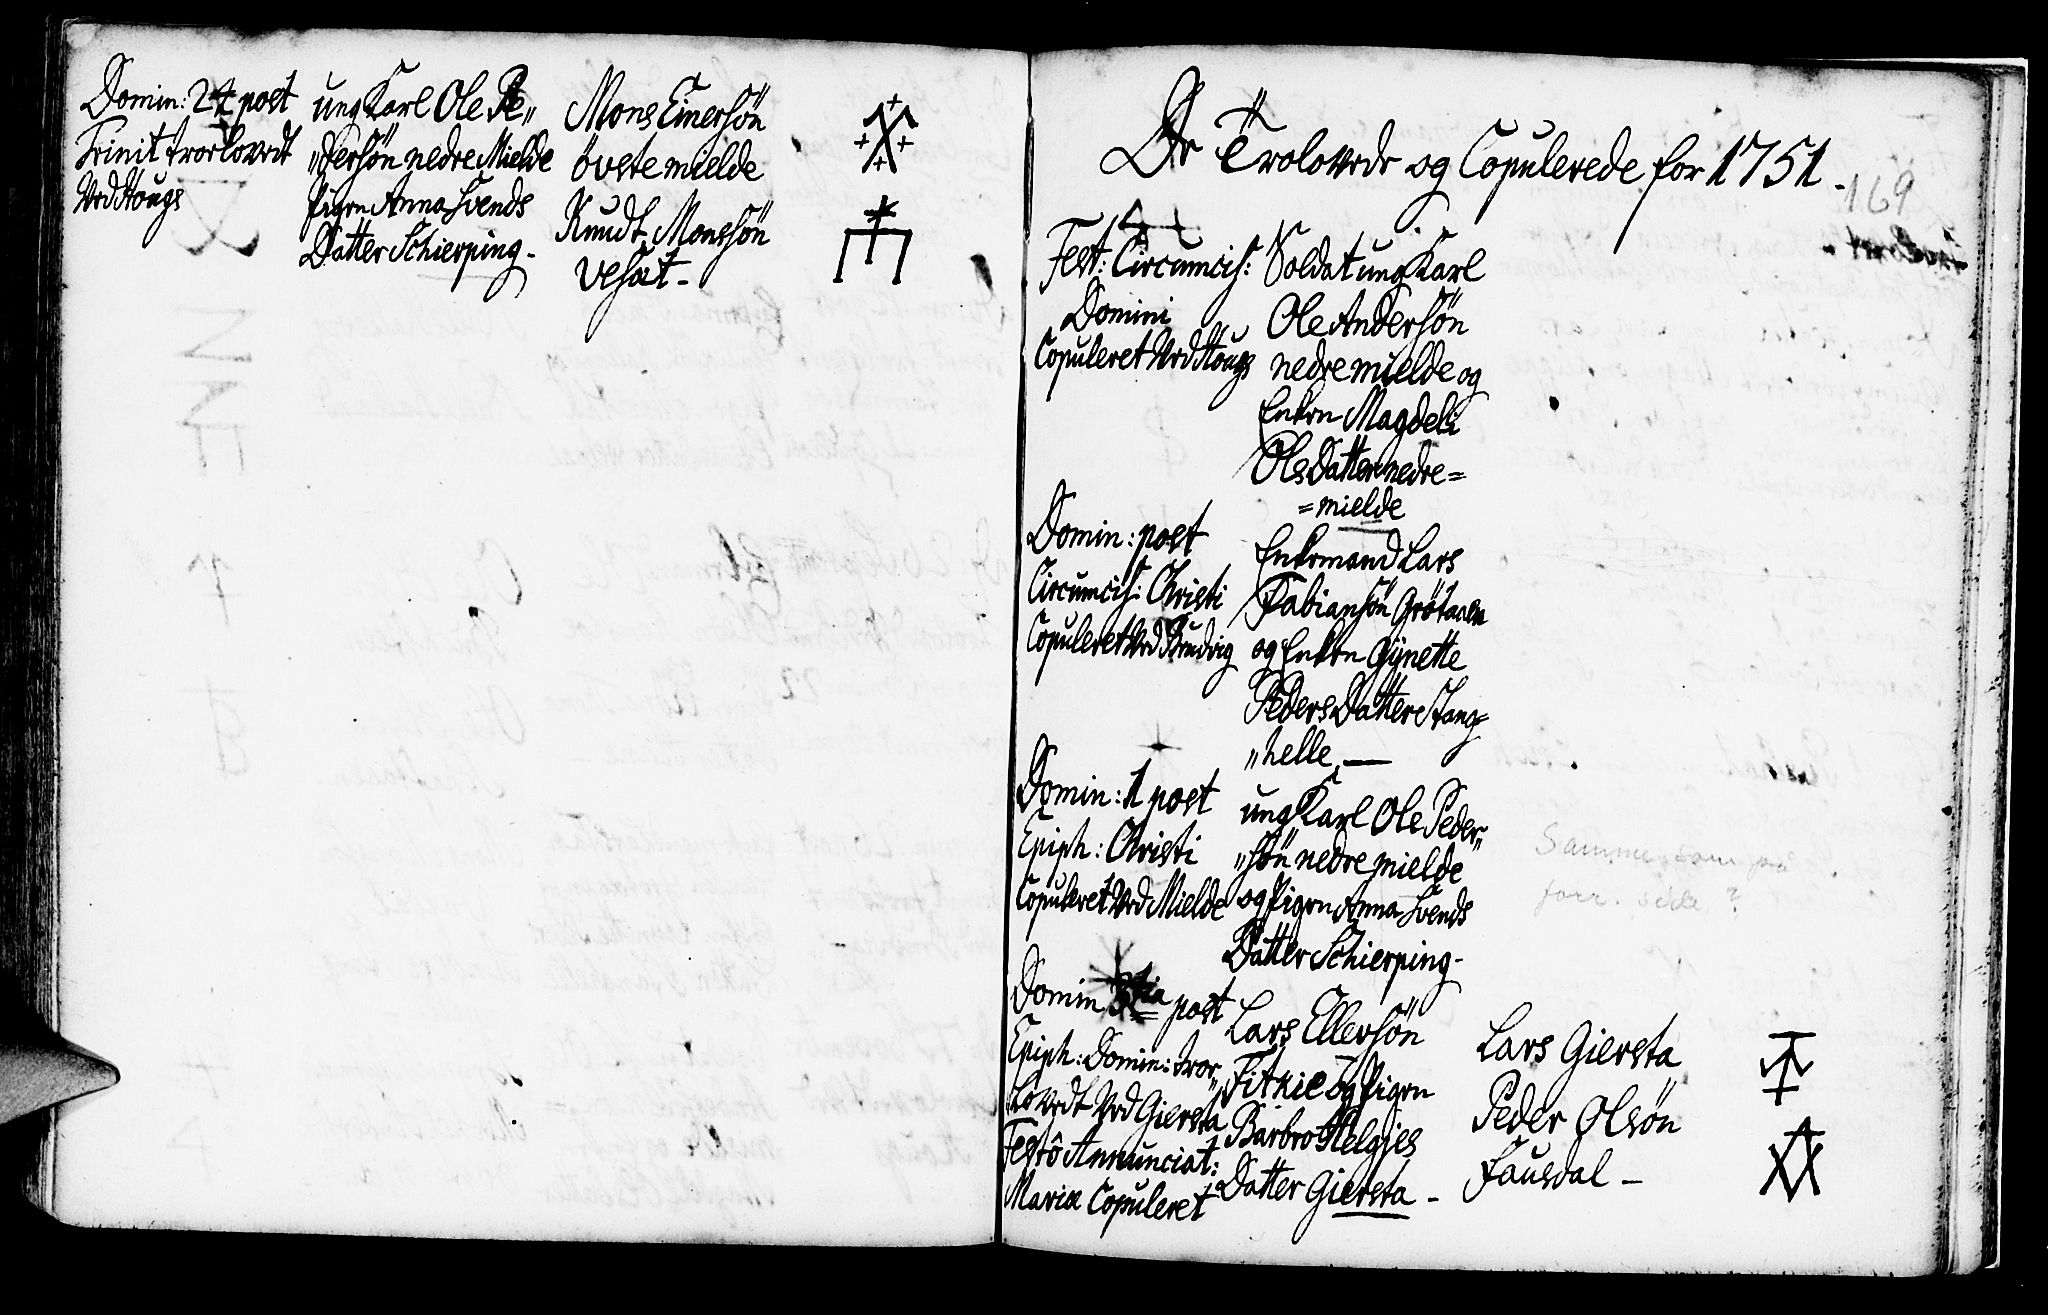 Domin: 24 post
Trinit troelovedt
ved Hougs
ung Karl Ole Pe„
„dersön nedre Mielde
Pigen Anna Svends
Datter Schierping -
Mons Einersön
övste mielde
Knudt Monssön
Vesæt -
De Trolovede og Copulerede for 1751.
169
Fest: Circumcis:
Domini
Copuleret ved Hougs
Soldat ung Karl
Ole Andersön
nedre mielde og
Enken Magdeli
Ols Datter nedre =
= mielde
Domin: post
Circumcis: Christi
Copuleret ved Brudvig
Enkemand Lars
Fabiansön Grötaaen
og Enken Gÿnette
Peders Datter Stang=
„helle —
Domin: 1 post
Epiph: Christi
Copuleret ved Mielde
ung Karl Ole Peder„
„sön nedre mielde
og Pigen Anna Svends
Datter Schierping -
Samme som på
forr. side ?
Domin 3tia post
Epiph: Domin: troe„
lovedt ved Giersta
Festô Annunciat:
Mariæ Copuleret
Lars Ellersön
Fitkie og Pigen
Barbro Helgies
Datter Giersta -
Lars Giersta
Peder Olsön
Fausdal -